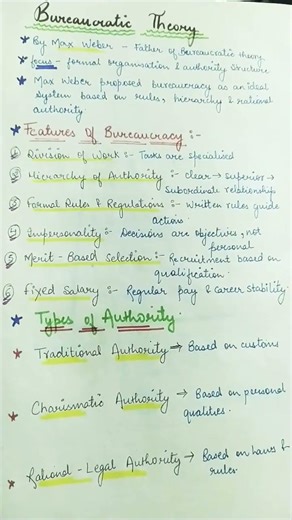 Bureaucratic Theory
* By Max Weber - Father of Bureaucratic theory
* focus - formal organisation & authority structure
* Max Weber proposed bureaucracy as an ideal
system based on rules, hierarchy & rational
authority
* Features of Bureaucracy :-
1 Division of Work :- Tasks are specialised
2 Hierarchy of Authority :- clear → superior →
subordinate relationships
3 Formal Rules & Regulations :- Written rules guide
actions
4 Impersonality :- Decisions are objectives, not
personal
5 Merit-Based Selection :- Recruitment based on
qualification.
6 Fixed Salary :- Regular pay & career stability.
* Types of Authority.
* Traditional Authority → Based on customs
* Charismatic Authority → Based on personal
qualities.
* Rational-Legal Authority → Based on laws &
rules